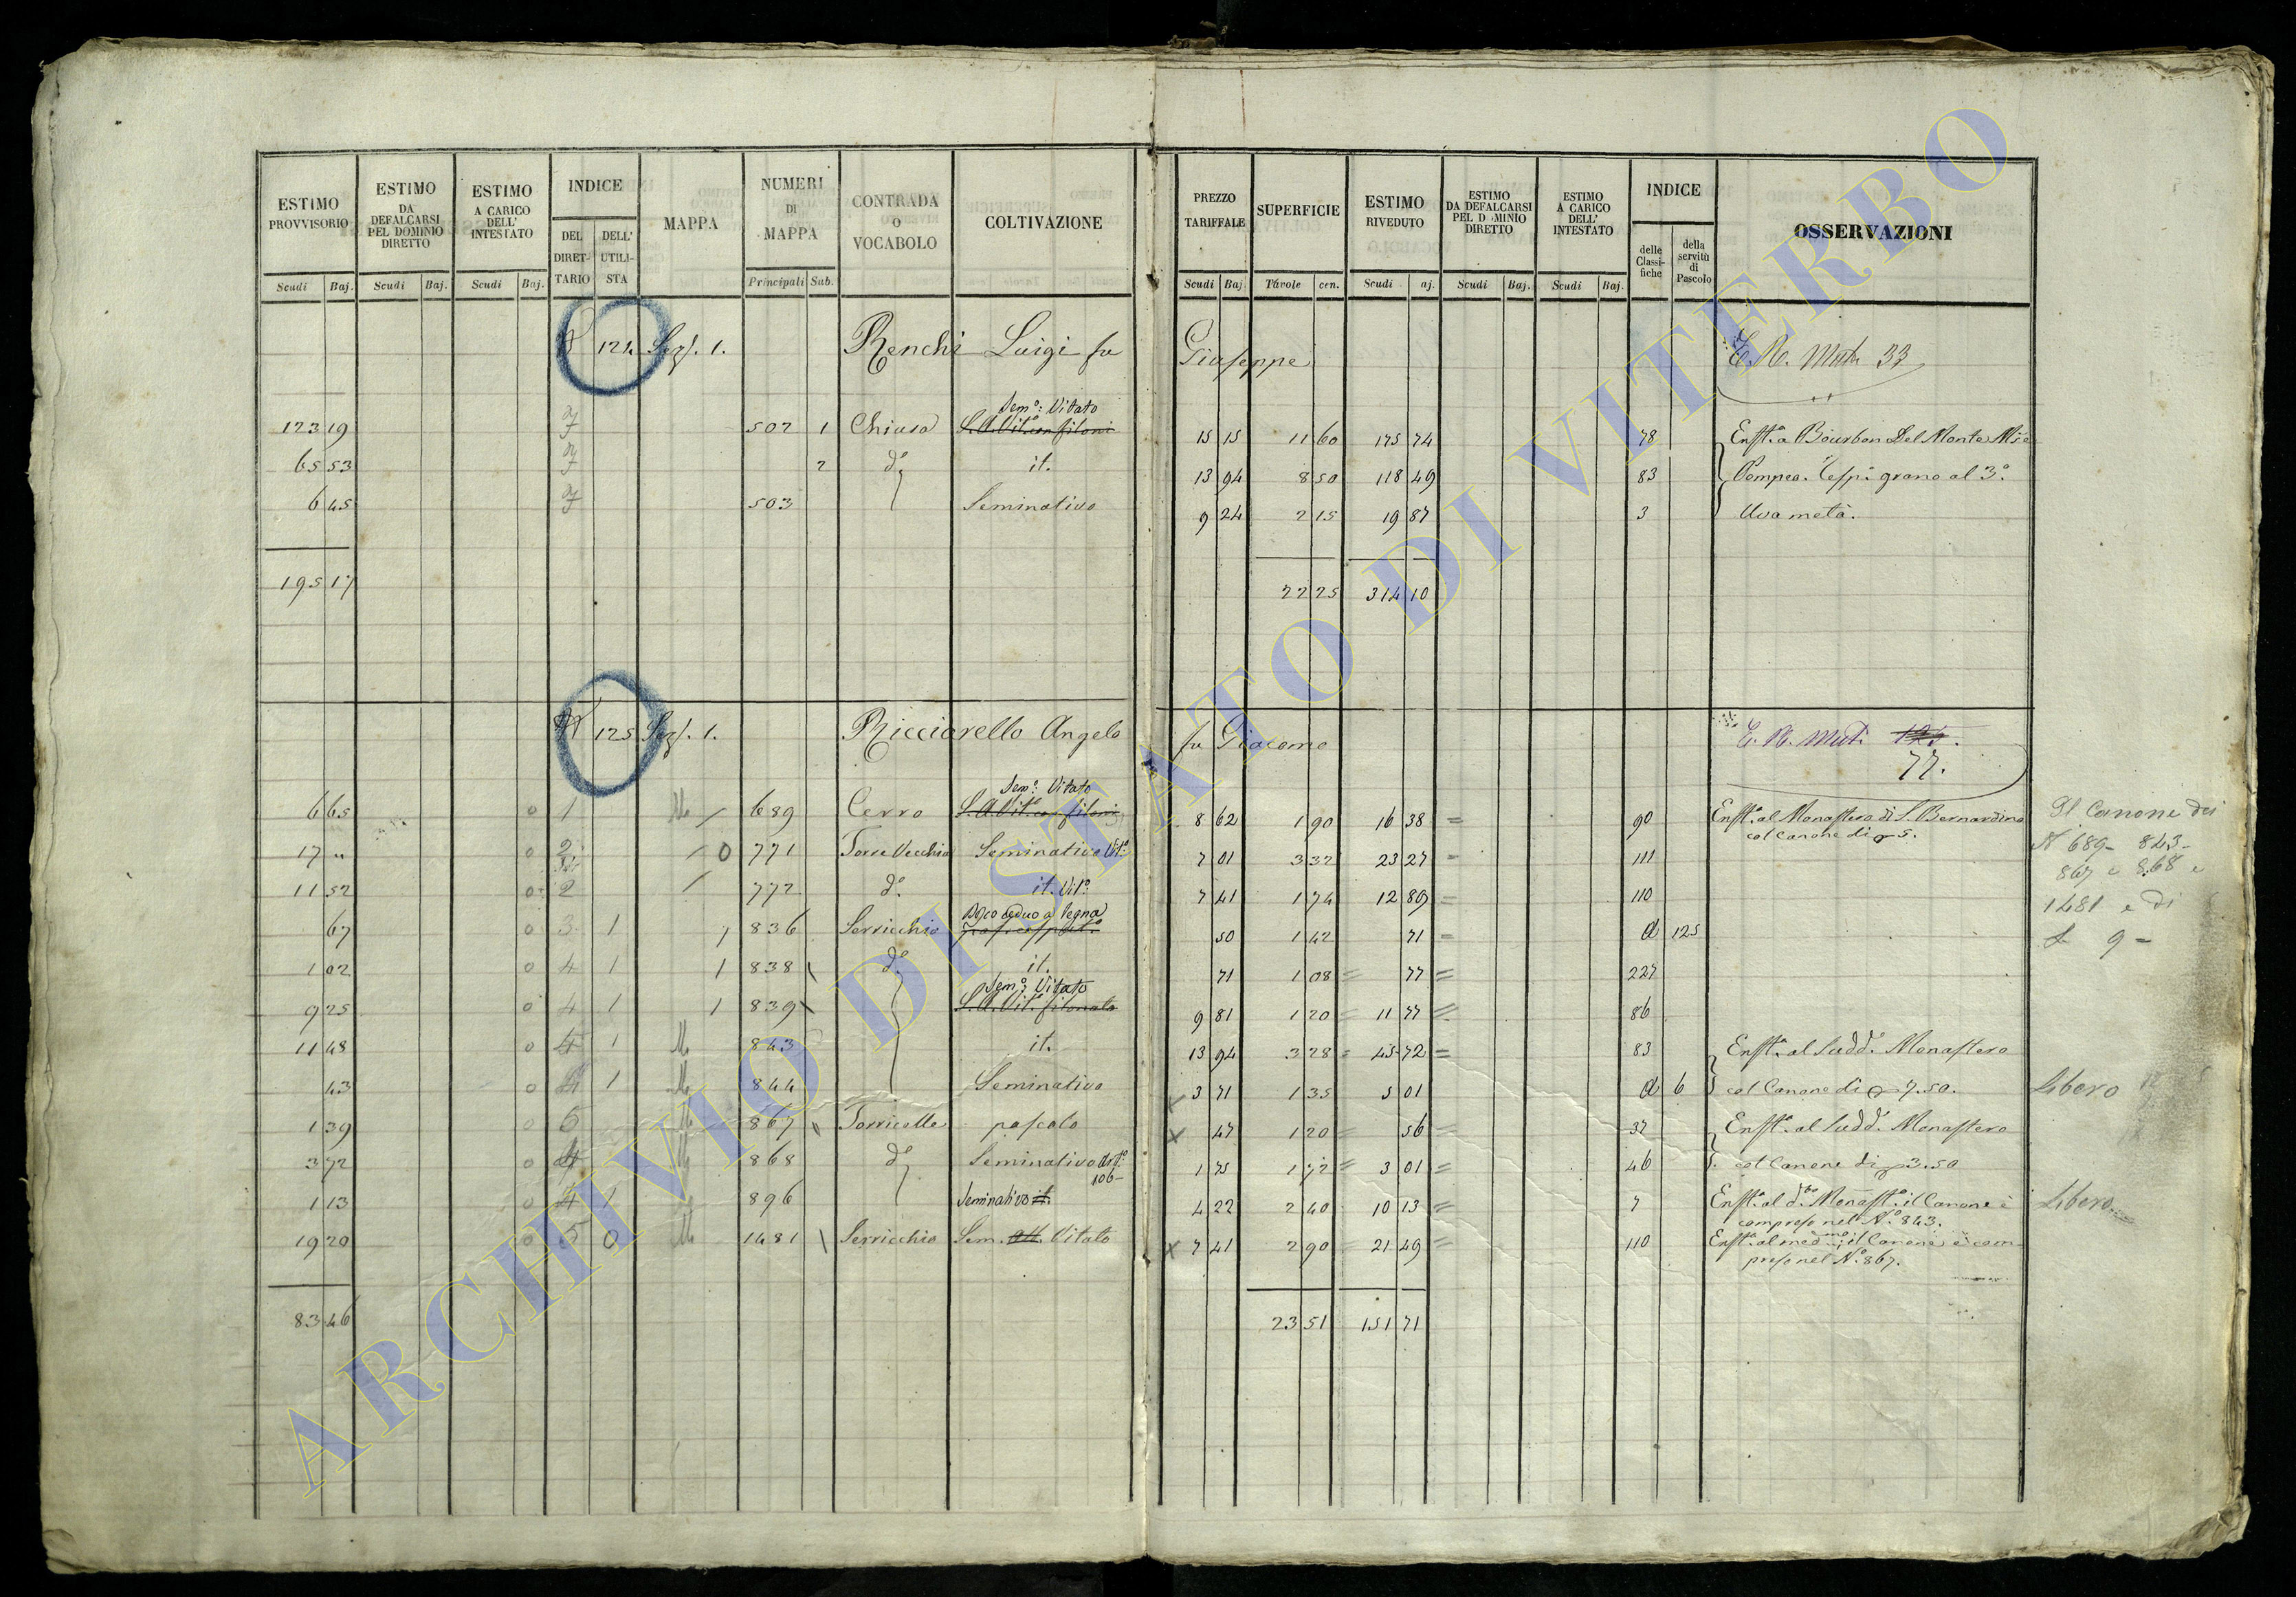 ESTIMO PROVVISORIO | ESTIMO DA DEFALCARSI PEL DOMINIO DIRETTO | ESTIMO A CARICO DELL' INTESTATO | INDICE | MAPPA | NUMERI DI MAPPA | CONTRADA O VOCABOLO | COLTIVAZIONE | PREZZO TARIFFALE | SUPERFICIE | ESTIMO RIVEDUTO | ESTIMO DA DEFALCARSI PEL D MINIO DIRETTO | ESTIMO A CARICO DELL' INTESTATO | INDICE | OSSERVAZIONI
DEL DIRETTARIO | DELL' UTILISTA | delle Classifiche | della servitù di Pascolo
Scudi | Baj. | Scudi | Baj. | Scudi | Baj. | Principali | Sub. | Scudi | Baj | Tavole | cen. | Scudi | aj. | Scudi | Baj. | Scudi | Baj.
124 Sez. 1. Renchi Luigi fu Giuseppe
33
Sem.o: Vitato
123 19 502 1 Chiusa S.A.Vit. con filoni 15 15 11 60 175 74 78 Enft.a a Bourbon Del Monte
65 53 2 d.o it. 13 94 8 50 118 49 83 Pompeo. grano al 3.o
6 45 503 Seminativo 9 24 2 15 19 87 3 Uva metà.
195 17 22 25 314 10
125 Sez. 1. Ricciarello Angelo fu Giacomo
77.
Sem.o: Vitato
6 65 0 1 689 Cerro 8 62 1 90 16 38 90 Enft.a al Monastero di S. Bernardino
col canone di 5.
17 " 0 2 0 771 Torre Vecchia Seminativo Vit.o 7 01 3 32 23 27 111
11 52 0 2 772 d.o it. Vit.o 7 41 1 74 12 89 110
Bosco ceduo a legna
67 0 3 1 836 Serricchio 50 1 42 71 a 125
1 02 0 4 1 838 d.o it. 71 1 08 77 227
Sem.o: Vitato
9 25 0 4 1 839 S.A.Vit. filonato 9 81 1 20 11 77 86
11 48 0 4 1 843 it. 13 94 3 28 45 72 83 Enft.a al Sudd.o Monastero
43 0 4 1 844 Seminativo 3 71 1 35 5 01 a 6 col Canone di 7.50.
1 39 0 5 867 Torricella pascolo 47 1 20 56 37 Enft.a al Sudd.o Monastero
3 72 0 4 868 d.o Seminativo 1 75 1 72 3 01 46 col Canone di 3.50
106
1 13 0 4 1 896 Seminativo it. 4 22 2 40 10 13 7 Enft.a al d.o Monast.o il Canone è
compreso nel N.o 843.
19 20 0 5 0 1481 Serricchio Sem. Vitato 7 41 2 90 21 49 110 Enft.a al med.mo il Canone è com
preso nel N.o 867.
83 46 23 51 151 71
Il Canone dei
N 689 - 843 -
867 e 868 e
1481 e di
9 -
Libero
Libero
ARCHIVIO DI STATO DI VITERBO